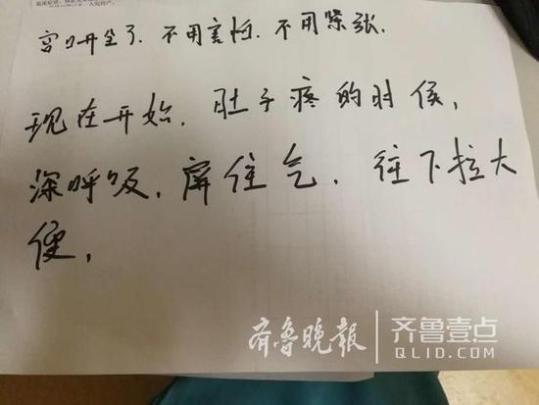 宫口开全了.不用害怕.不用紧张.
现在开始.肚子疼的时候,
深呼吸.屏住气.往下拉大
便,
齐鲁晚报 齐鲁壹点
QLID.COM